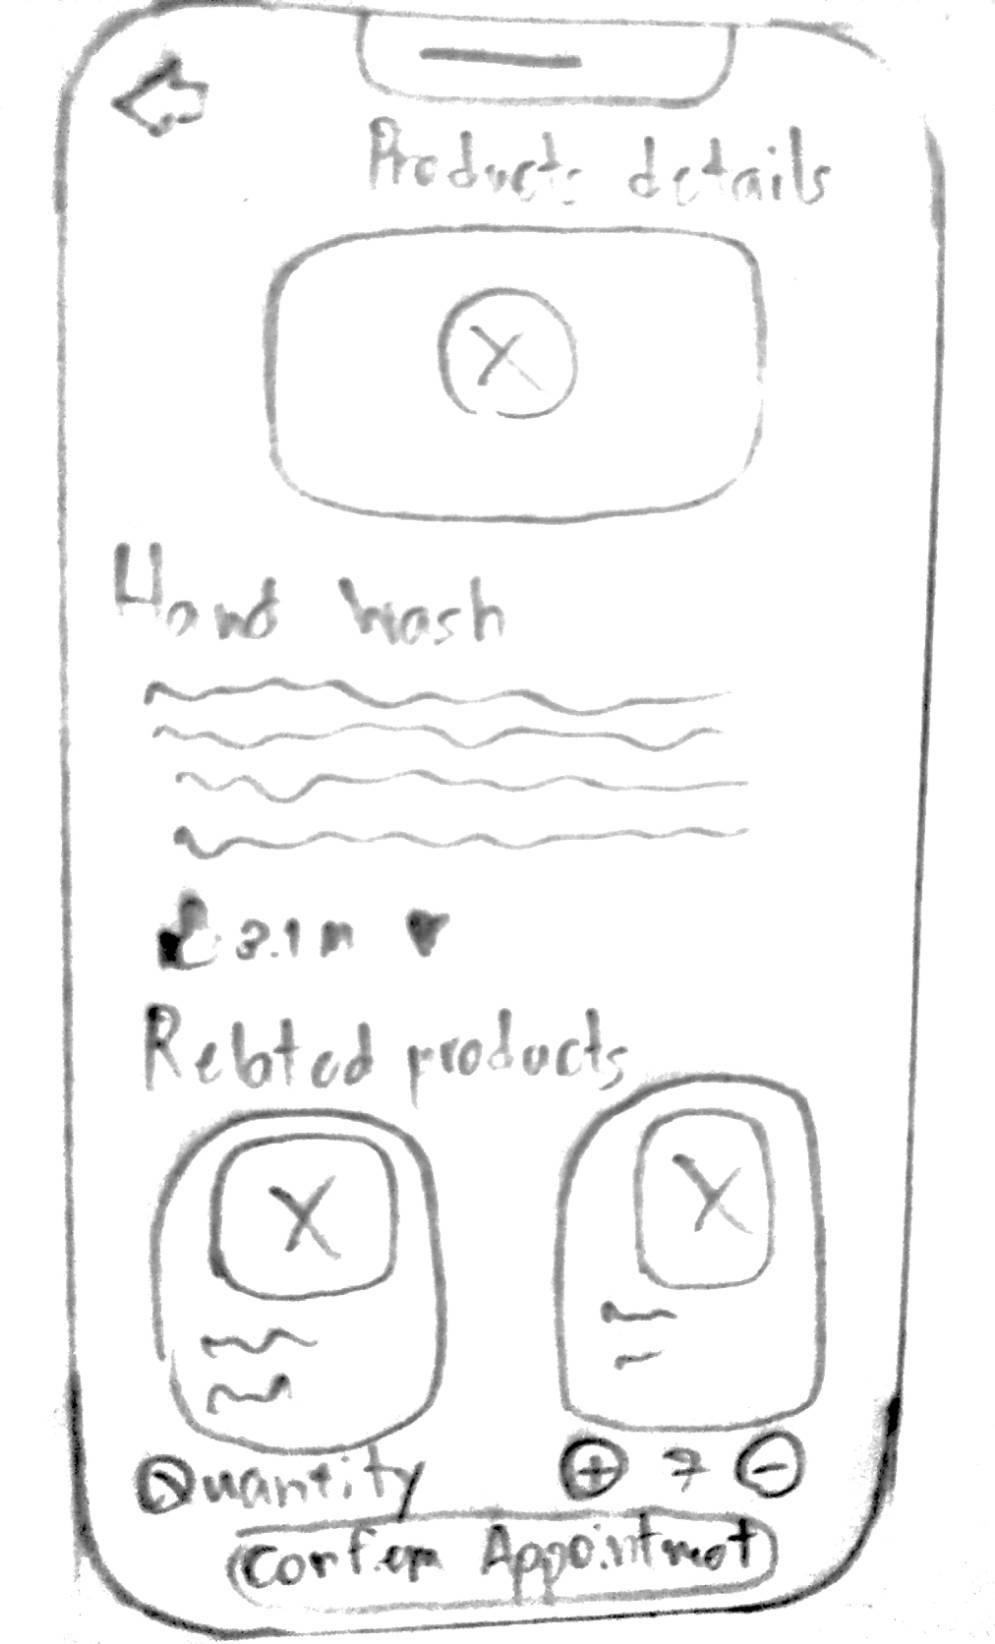 Products details
Hand wash
3.1m
Related products
Quantity + 7 -
Confirm Appointmet